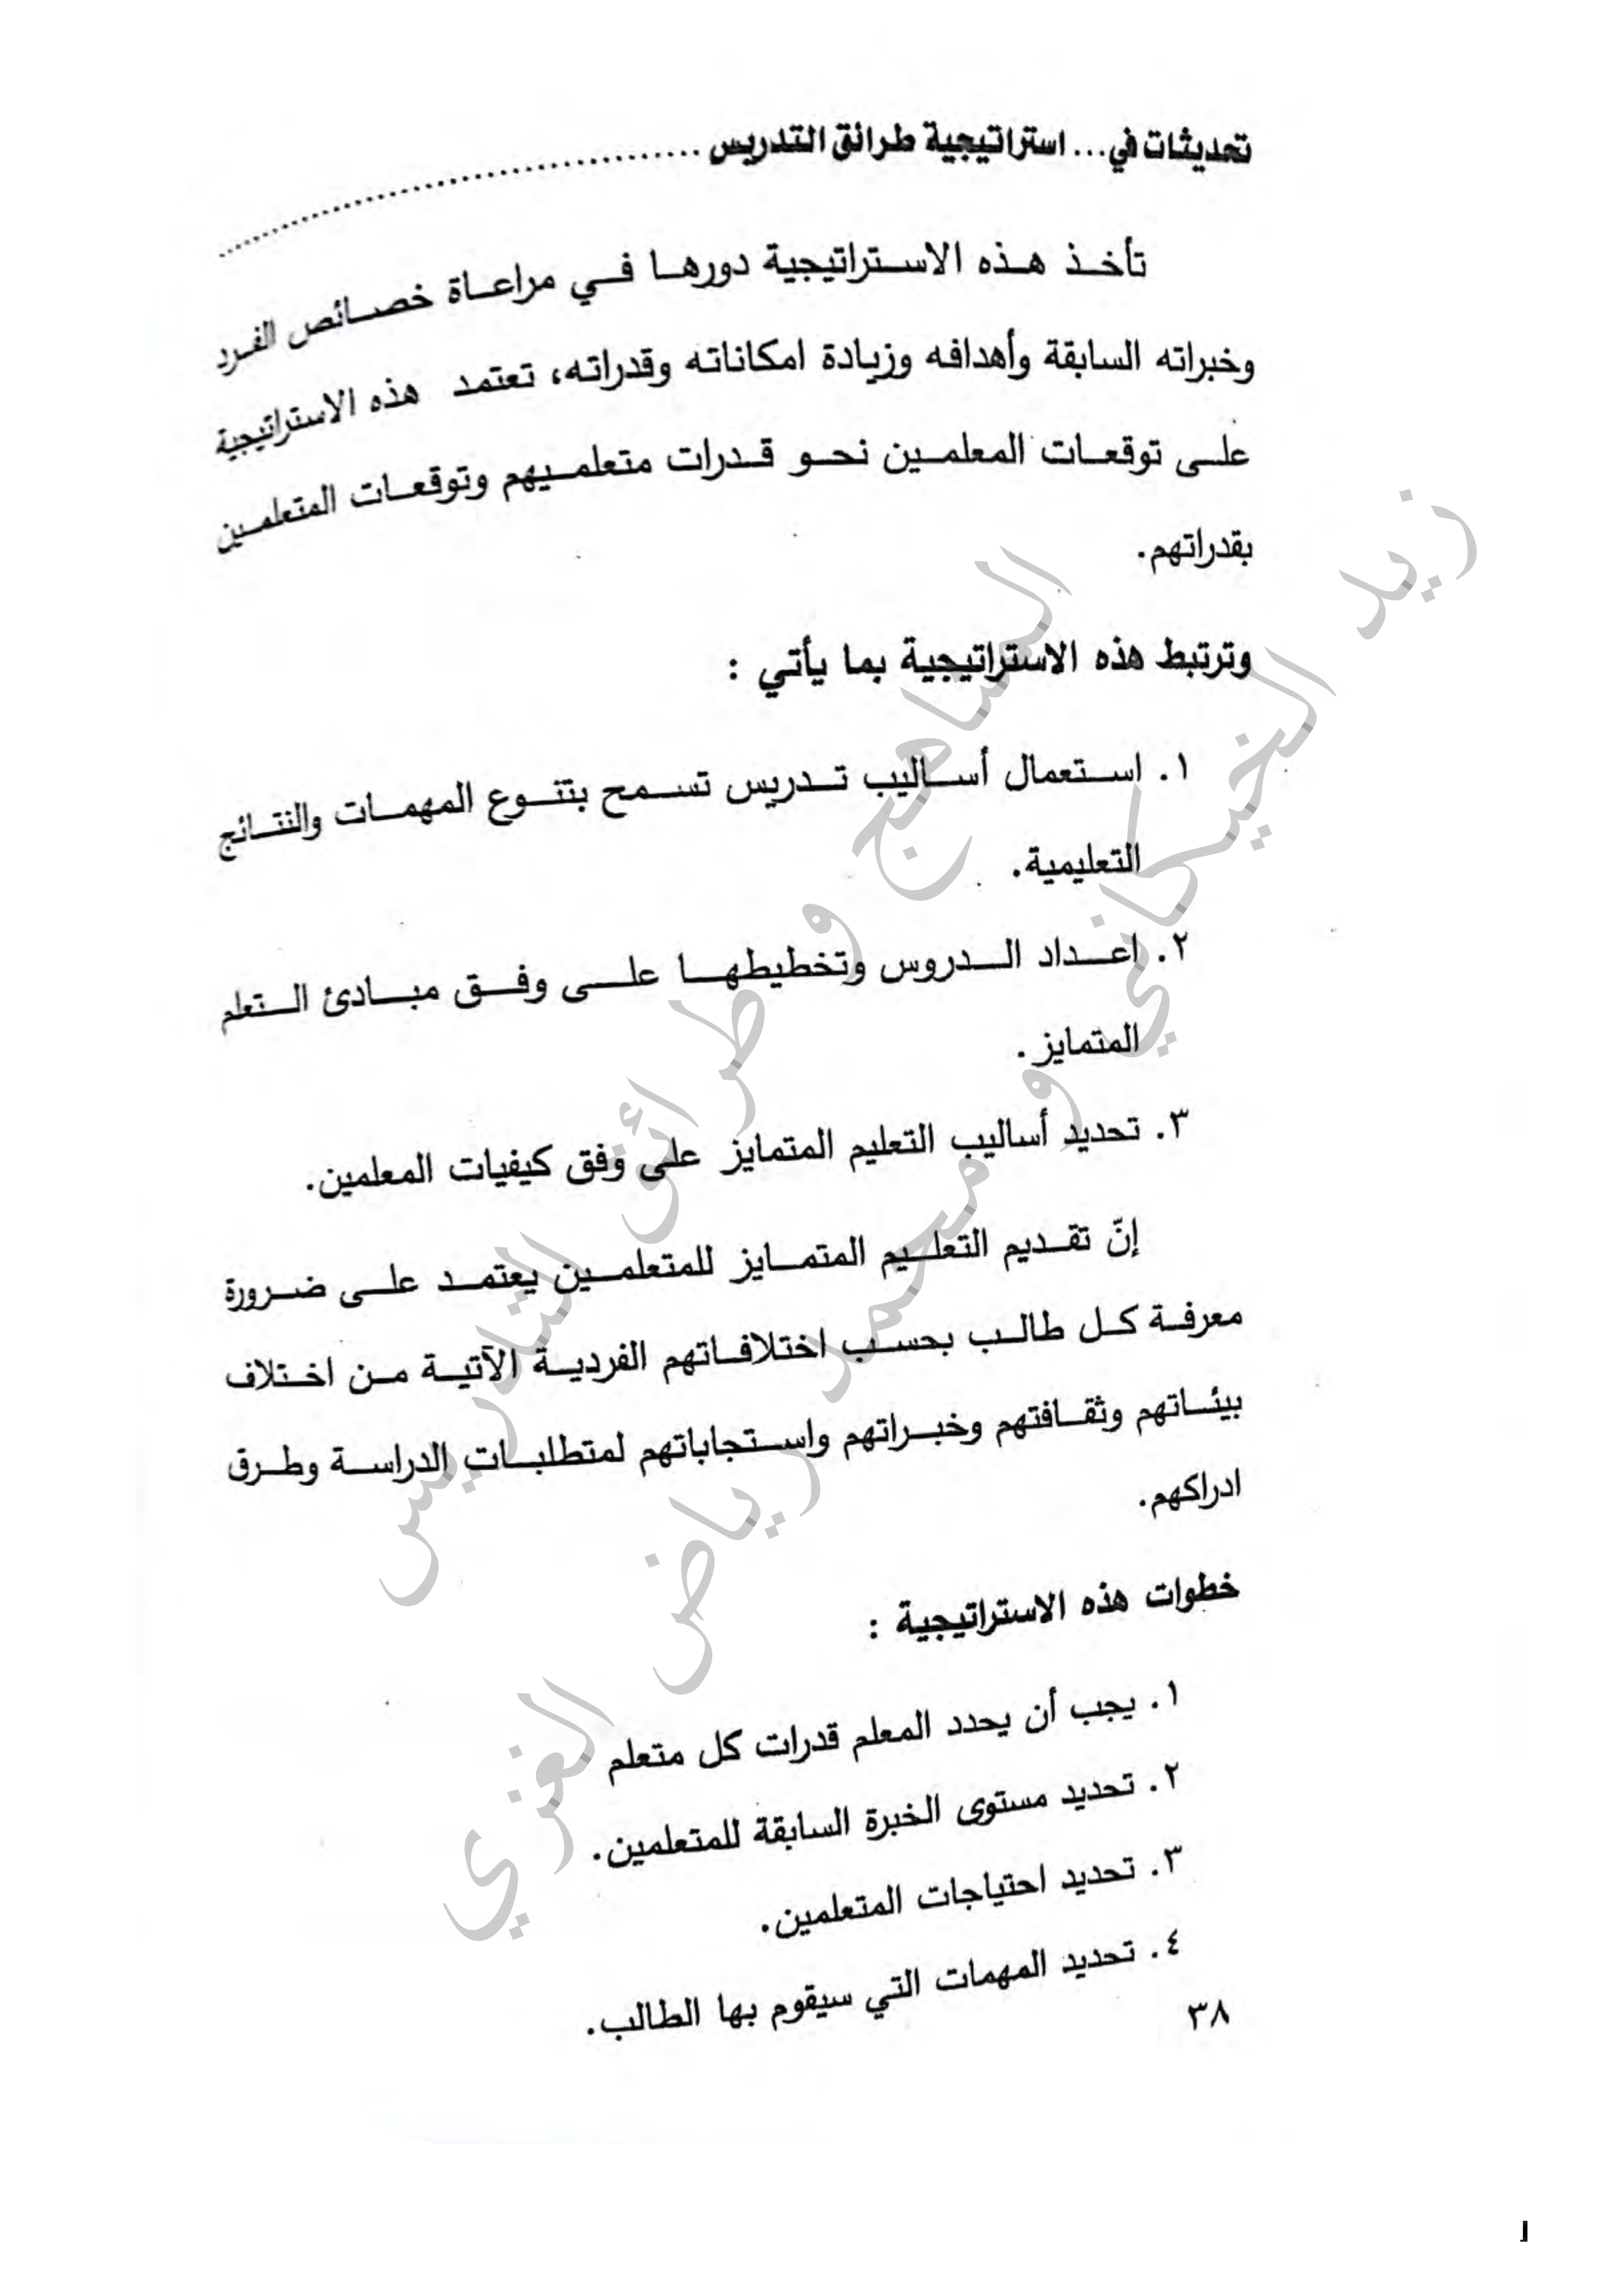 تحديثات في... استراتيجية طرائق التدريس
تأخذ هذه الاستراتيجية دورها في مراعاة خصائص الفرد
وخبراته السابقة وأهدافه وزيادة امكاناته وقدراته، تعتمد هذه الاستراتيجية
على توقعات المعلمين نحو قدرات متعلميهم وتوقعات المتعلمين
بقدراتهم.
وترتبط هذه الاستراتيجية بما يأتي :
١. استعمال أساليب تدريس تسمح بتنوع المهمات والنتائج
التعليمية.
٢. اعداد الدروس وتخطيطها على وفق مبادئ التعلم
المتمايز.
٣. تحديد أساليب التعليم المتمايز على وفق كيفيات المعلمين.
إنّ تقديم التعليم المتمايز للمتعلمين يعتمد على ضرورة
معرفة كل طالب بحسب اختلافاتهم الفردية الآتية من اختلاف
بيئاتهم وثقافتهم وخبراتهم واستجاباتهم لمتطلبات الدراسة وطرق
ادراكهم.
خطوات هذه الاستراتيجية :
١. يجب أن يحدد المعلم قدرات كل متعلم
٢. تحديد مستوى الخبرة السابقة للمتعلمين.
٣. تحديد احتياجات المتعلمين.
٤. تحديد المهمات التي سيقوم بها الطالب.
٣٨
المناهج و طرائق التدريس
زيد الخيكاني و محمد رياض الغزي